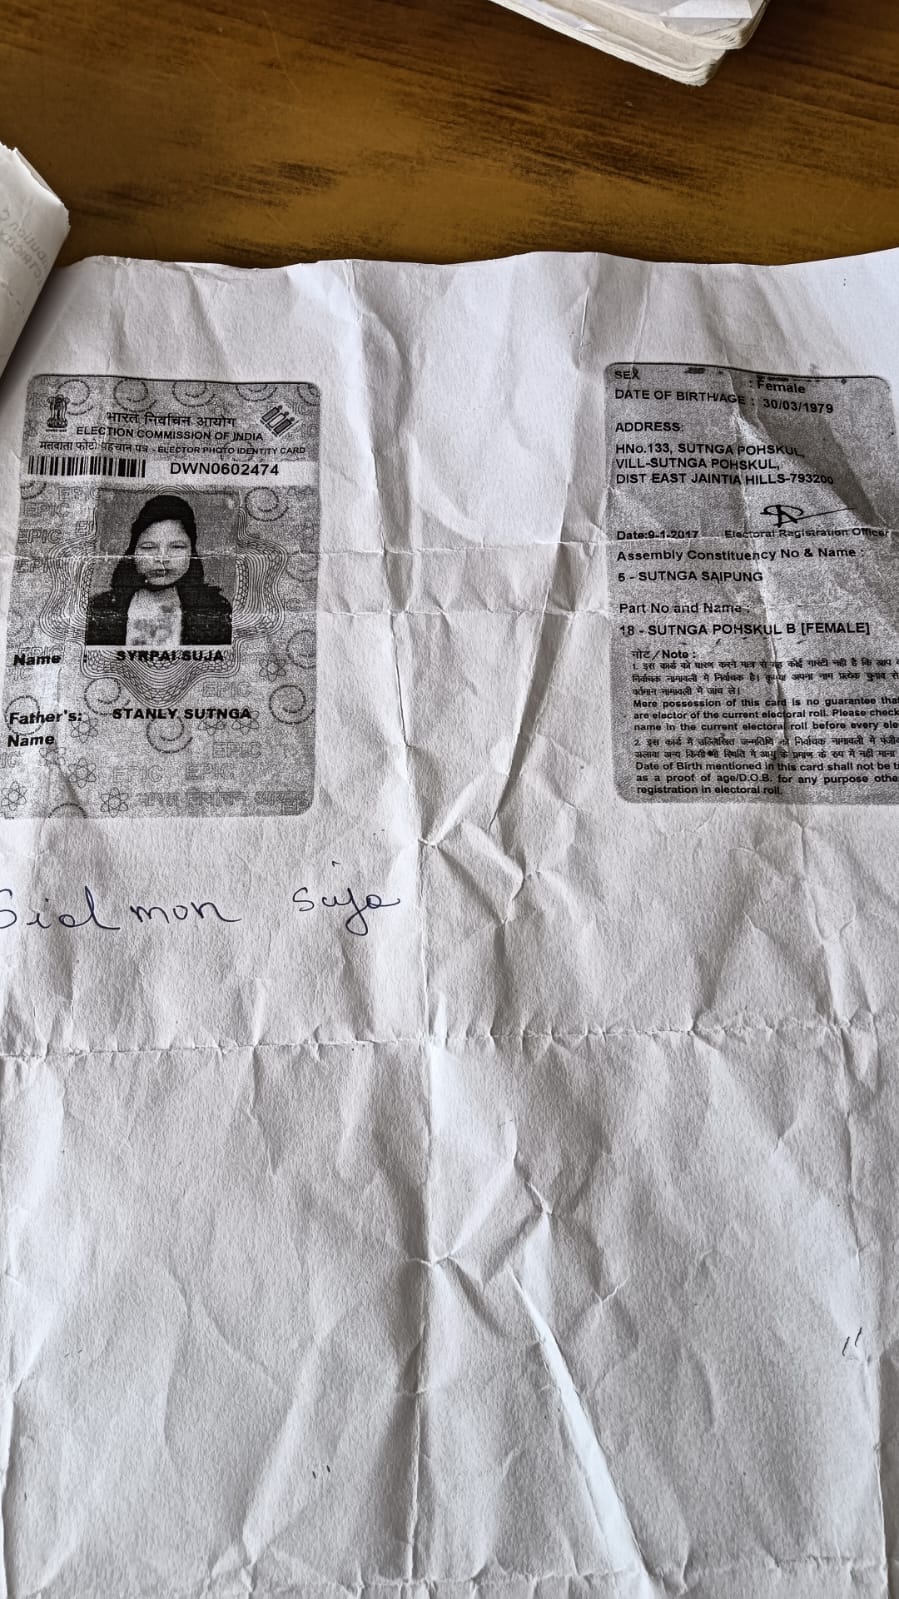 भारत निर्वाचन आयोग
ELECTION COMMISSION OF INDIA
मतदाता फोटो पहचान पत्र - ELECTOR PHOTO IDENTITY CARD
DWN0602474
Name : SYRPAI SUJA
Father's Name : STANLY SUTNGA
SEX : Female
DATE OF BIRTH/AGE : 30/03/1979
ADDRESS:
HNo.133, SUTNGA POHSKUL,
VILL-SUTNGA POHSKUL,
DIST EAST JAINTIA HILLS-793200
Date:9-1-2017 Electoral Registration Officer
Assembly Constituency No & Name :
5 - SUTNGA SAIPUNG
Part No and Name :
18 - SUTNGA POHSKUL B [FEMALE]
नोट / Note :
1. इस कार्ड को धारण करने मात्र से यह कोई गारंटी नही है कि आप
निर्वाचक नामावली में निर्वाचक है। कृपया अपना नाम प्रत्येक चुनाव से
वर्तमान नामावली में जांच ले।
Mere possession of this card is no guarantee that
are elector of the current electoral roll. Please check
name in the current electoral roll before every ele
2. इस कार्ड में उल्लिखित जन्मतिथि को निर्वाचक नामावली में पंजी
अलावा अन्य किसी भी स्थिति में आयु के प्रमाण के रुप में नही माना
Date of Birth mentioned in this card shall not be t
as a proof of age/D.O.B. for any purpose othe
registration in electoral roll.
Sidmon Suja